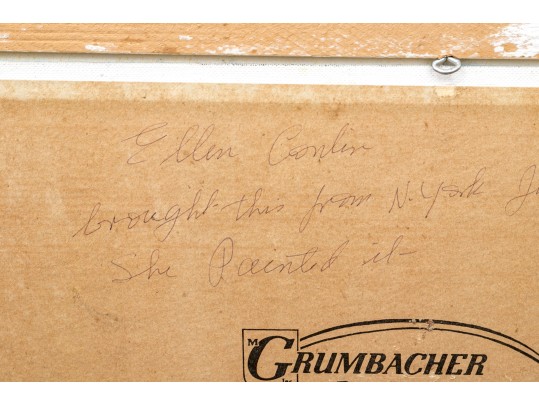 Ellen Conlin
brought this from N. York
She Painted it
M
GRUMBACHER